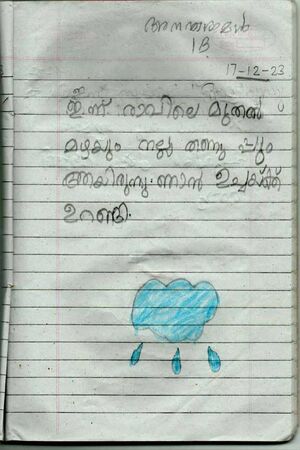 അനന്തരാമൻ
1B
17-12-23
ഇന്ന് രാവിലെ മുതൽ
മഴയും നല്ല തണുപ്പും
ആയിരുന്നു. ഞാൻ ഉച്ചയ്ക്ക്
ഉറങ്ങി.